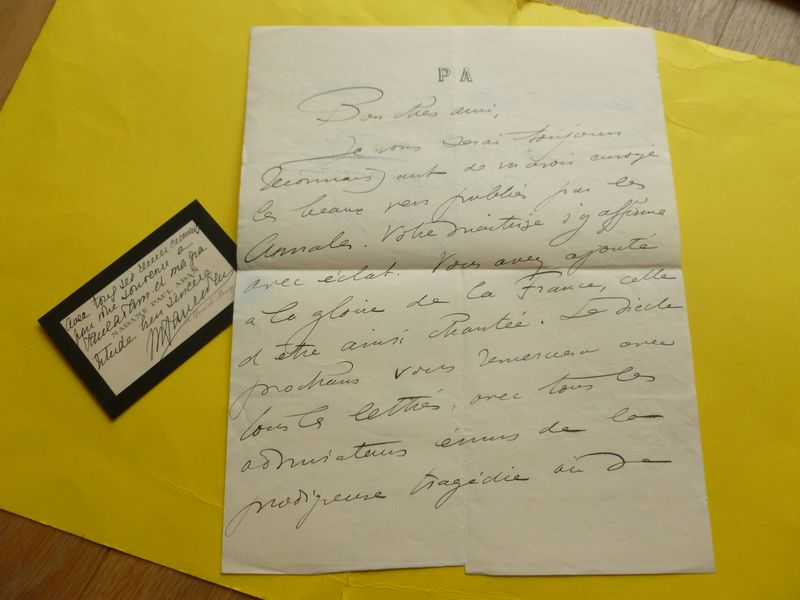 P A
Bon très ami,
Je vous serai toujours
reconnaissant de m'avoir envoyé
les beaux vers publiés par les
Annales. Votre maîtrise s'y affirme
avec éclat. Vous avez ajouté
à la gloire de la France, celle
d'être ainsi chantée. Le siècle
prochain vous remerciera avec
tous les lettrés, avec tous les
admirateurs émus de la
prodigieuse tragédie où se
avec tous ses remerciements
pour une souvenir à
Paul Adam et ma gra
MADAME PAUL ADAM
titude bien sincère